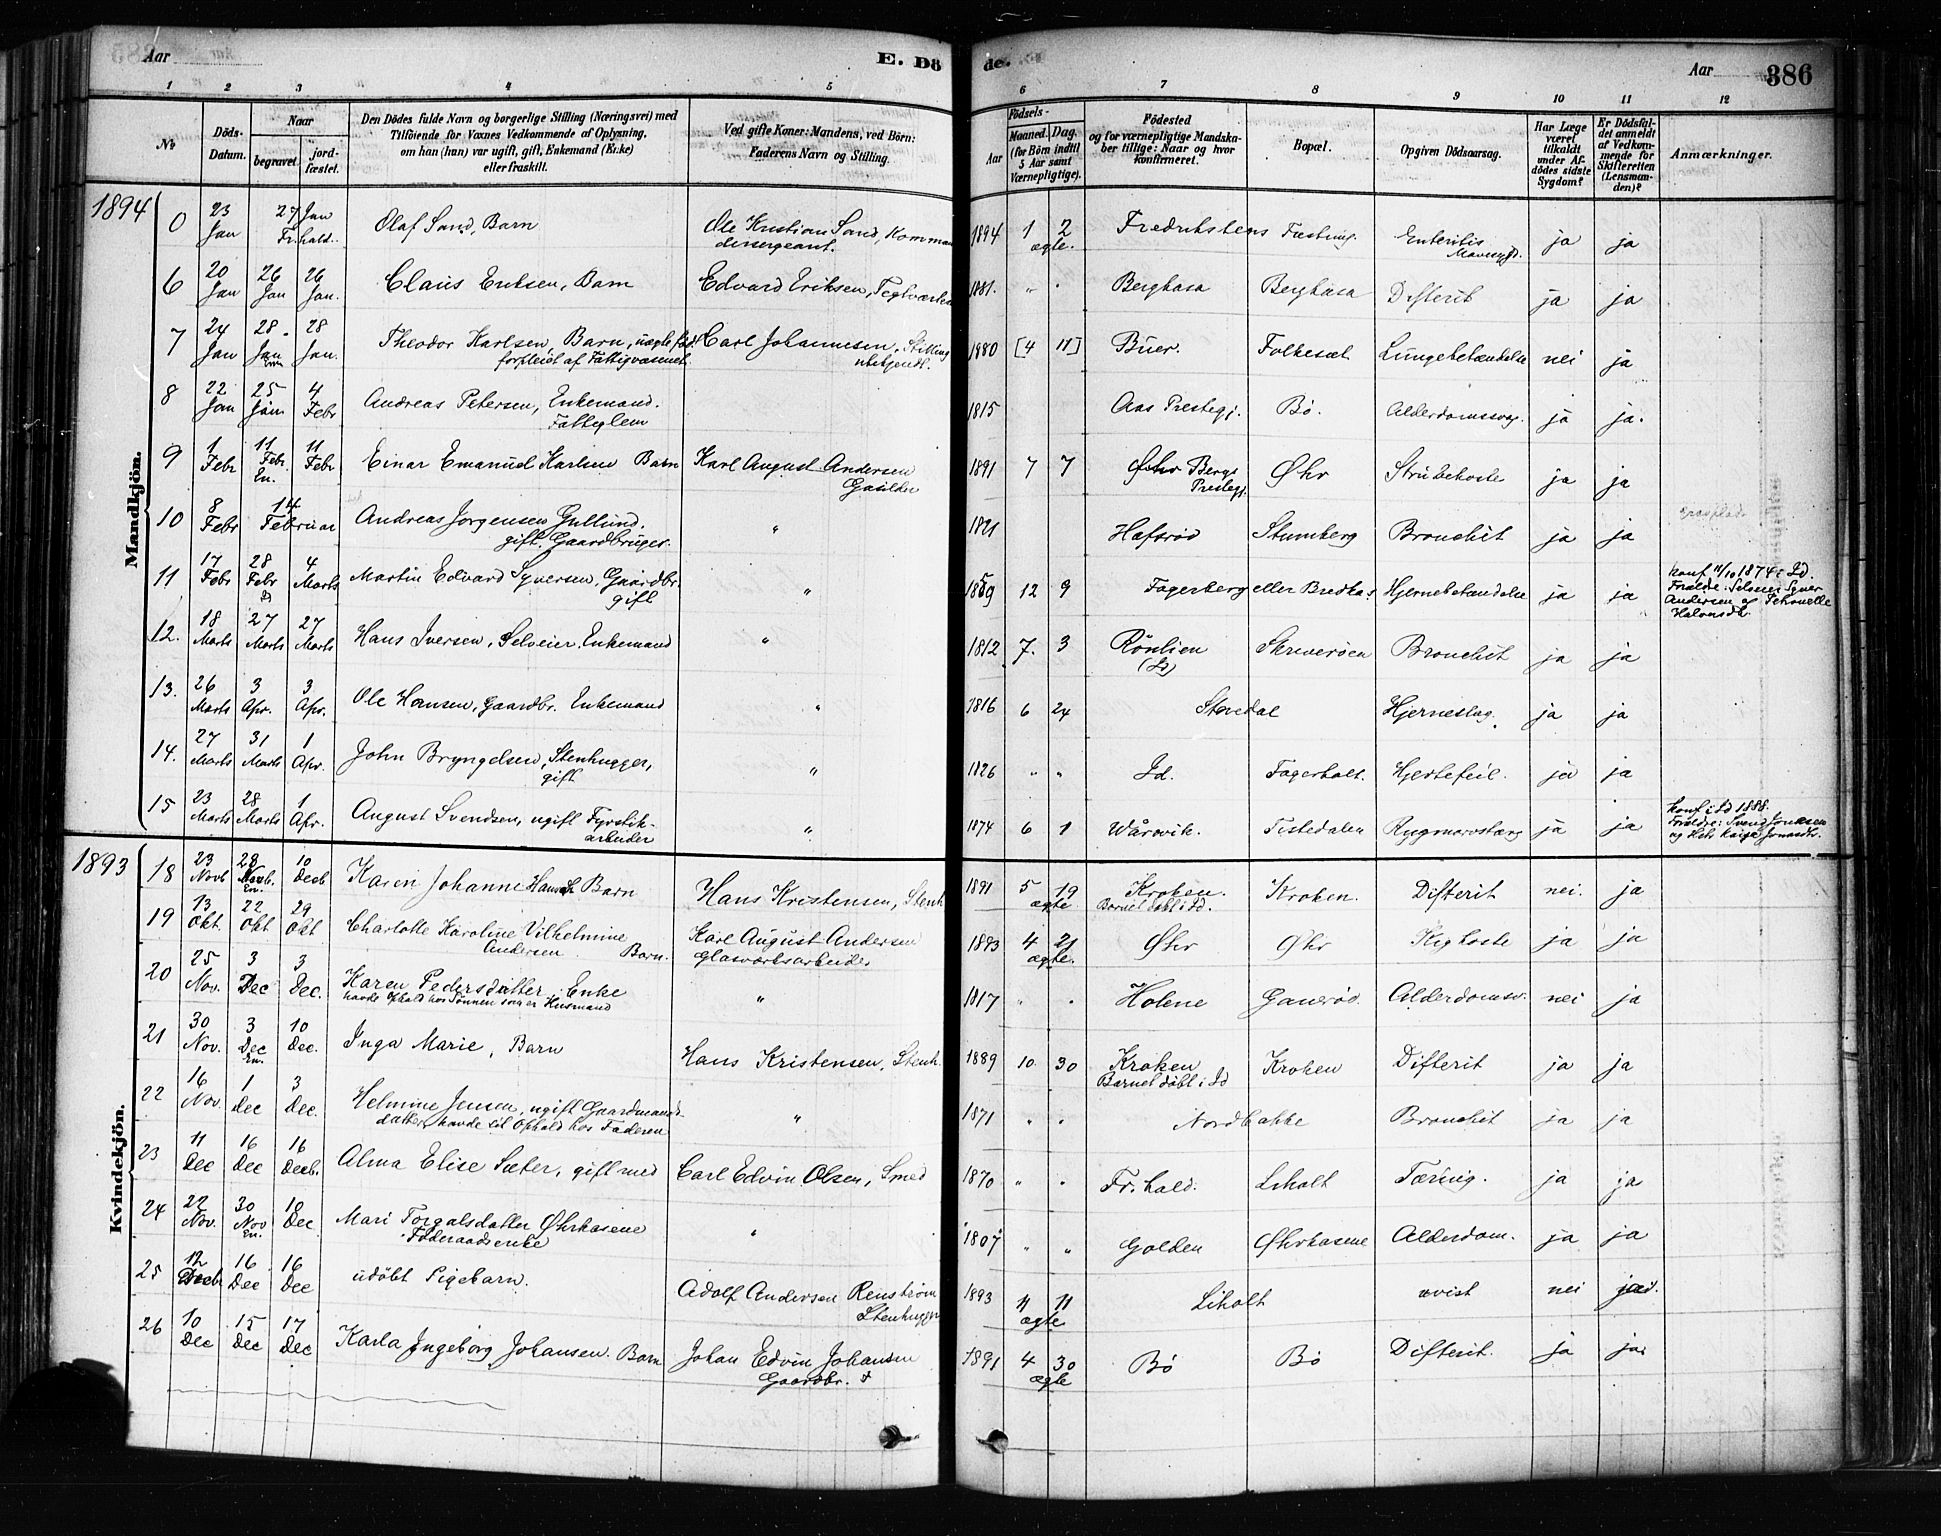 Aar
E. Dö
de.
Aar
386
1 2 3 4 5 6 7 8 9 10 11 12
No
Döds-Datum.
Naar
begravet.
jord-fæstet.
Den Dödes fulde Navn og borgerlige Stilling (Næringsvei) med
Tilföiende for Voxnes Vedkommende af Oplysning,
om han (hun) var ugift, gift, Enkemand (Enke)
eller fraskilt.
Ved gifte Koner: Mandens, ved Börn:
Faderens Navn og Stilling.
Födsels-
Aar
Maaned. Dag.
(for Börn indtil
5 Aar samt
Værnepligtige).
Födested
og for værnepligtige Mandska-
ber tillige: Naar og hvor
konfirmeret.
Bopæl.
Opgiven Dödsaarsag.
Har Læge
været
tilkaldt
under Af-
dödes sidste
Sygdom?
Er Dödsfal-
det anmeldt
af Vedkom-
mende for
Skifteretten
(Lensman-
den)?
Anmærkninger.
Mandkjön.
1894
0 23 Jan 27 Jan Fr.hald. Olaf Sand, Barn Ole Kristian Sand, Komman
dersergeant. 1894 1 2 ægte. Fredrikstens Fæstning. Enteritis ja ja
6 20 Jan 26 Jan 26 Jan. Claus Eriksen, Barn Edvard Eriksen, 1881. " " Berghasa Berghasa Difterit ja ja
7 24 Jan 28 Jan En 28 Jan. Theodor Karlsen, Barn, uægte født Carl Johannesen, Stilling
forpleiet af Fattigvæsenet ubekjendt. 1880 [4 11] Buer. Folkesæt Lungebetændelse nei ja
8 22 Jan 25 Jan 4 Febr Andreas Petersen, Enkemand.
Fattiglem 1815 Aas Prestegj. Bö. Alderdomssvag. ja ja.
9 1 Febr 11 Febr. En. 11 Febr Einar Emanuel Karlsen Barn Karl August Andersen
1891 7 7 Øhr Bergs Prestegj. Øhr Strubehoste ja ja
10 8 Febr 14 Februar Andreas Jörgensen Gullund.
gift. Gaardbruger. " 1821 Hafsröd Stumberg Bronchit ja ja
11 17 Febr 28 Febr 4 Marts Martin Edvard Syversen, Gaardbr.
gift " 1859 12 9 Fagerberg eller Bredkas Hjernebetændelse ja ja konf 11/10 1874 i Id.
Forældre: Selveier Syver
Andersen og Petronelle
Halvorsdtr.
12. 18 Marts 27 Marts 27 Marts Hans Iversen, Selveier, Enkemand " 1812 7. 3 Rönlien
(Id) Skriveröen Bronchit ja ja
13. 26 Marts 3 Apr. 3 Apr. Ole Hansen, Gaardbr. Enkemand " 1816 6 24 Stenedal Hjerneslag. ja ja
14. 27 Marts 31 Marts 1 Apr. John Bryngelsen, Stenhugger,
gift " 1826 " " Id. Fagerholt. Hjertefeil. ja ja
15 23 Marts 28 Marts 1 Apr. August Svendsen, ugift Fyrstik-
arbeider " 1874 6 1 Wårvik. Tistedalen Rygmarvstæring ja ja konf i Id 1888.
Forældre: Svend Jonasen
Kvindekjön.
1893
18 23 Novb 28 Novb. En. 10 Decb Karen Johanne Hansdt Barn Hans Kristensen, Stenh 1891 5 19 ægte Kroken.
Barnet døbt i Id. Kroken. Difterit nei. ja
19 13 Okt. 22 Okt 29 Okt Charlotte Karoline Vilhelmine
Andersen Barn. Karl August Andersen
Glasværksarbeider 1893 4 21 ægte. Øhr Øhr Kighoste ja ja
20 25 Nov. 3 Dec 3 Dec. Karen Pedersdatter Enke
havde Ophold hos Sønnen som er Husmand " 1817 " " Holene Ganeröd. Alderdomssv. nei ja
21 30 Nov. 3 Dec En. 10 Dec. Inga Marie, Barn Hans Kristensen, Stenh. 1889 10. 30 Kroken
Barnet døbt i Id Kroken Difterit ja ja
22 16 Nov. 1 Dec 3 Dec. Helmine Jensen, ugift Gaardmands
datter, havde sit Ophold hos Faderen " 1871 " " Nordbakke Bronchit ja ja
23 11 Dec 16 Dec 16 Decb. Alma Elise Sæter, gift med Carl Edvin Olsen, Smed 1870 " " Fr.hald. Liholt Tæring. ja ja
24 22 Nov. 30 Nov En. 10 Dec Mari Torgalsdatter Øhrkasene
Føderaadsenke " 1807 " " Golden Øhrkasene Alderdom. ja ja
25 12 Decb 16 Dec 16 Dec udöbt Pigebarn. Adolf Andersen Renström
Stenhugger 1893 11 11 ægte Liholt uvist nei ja
26 10 Dec 15 Dec 17 Dec Karla Ingeborg Johansen. Barn Johan Edvin Johansen
Gaardbr. 1891 4 30 ægte Bö Bö Difterit. ja ja